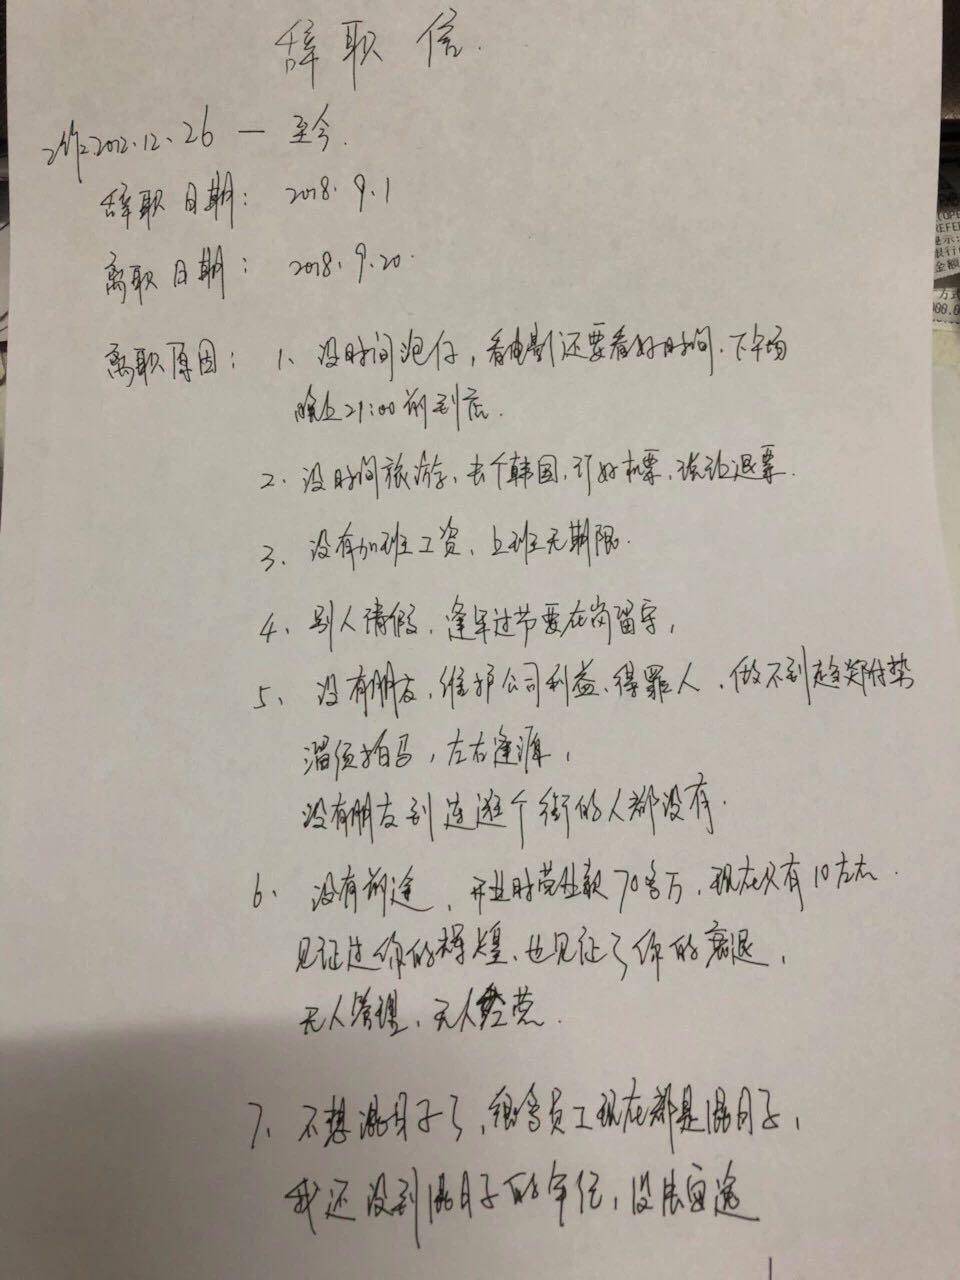 辞职信.
工作2012.12.26 — 至今.
辞职日期: 2018.9.1
离职日期: 2018.9.20.
离职原因: 1、没时间泡仔,看电影还要看好时间.下午场
晚上21:00前到店.
2、没时间旅游、去个韩国,订好机票,
退票.
3、没有加班工资、上班无期限.
4、别人请假,逢年过节要在岗留守,
5、没有朋友,维护公司利益、得罪人,做不到趋炎附势
溜须拍马,左右逢源,
没有朋友到连逛个街的人都没有.
6、没有前途、开业时营业款70多万,现在只有10左右.
见证过你的辉煌、也见证了你的衰退,
无人管理,无人经营.
7、不想混日子了,很多员工现在都是混日子,
我还没到混日子的年纪,没
OPE
REFE
提示:
银行
金额
方式
000.0